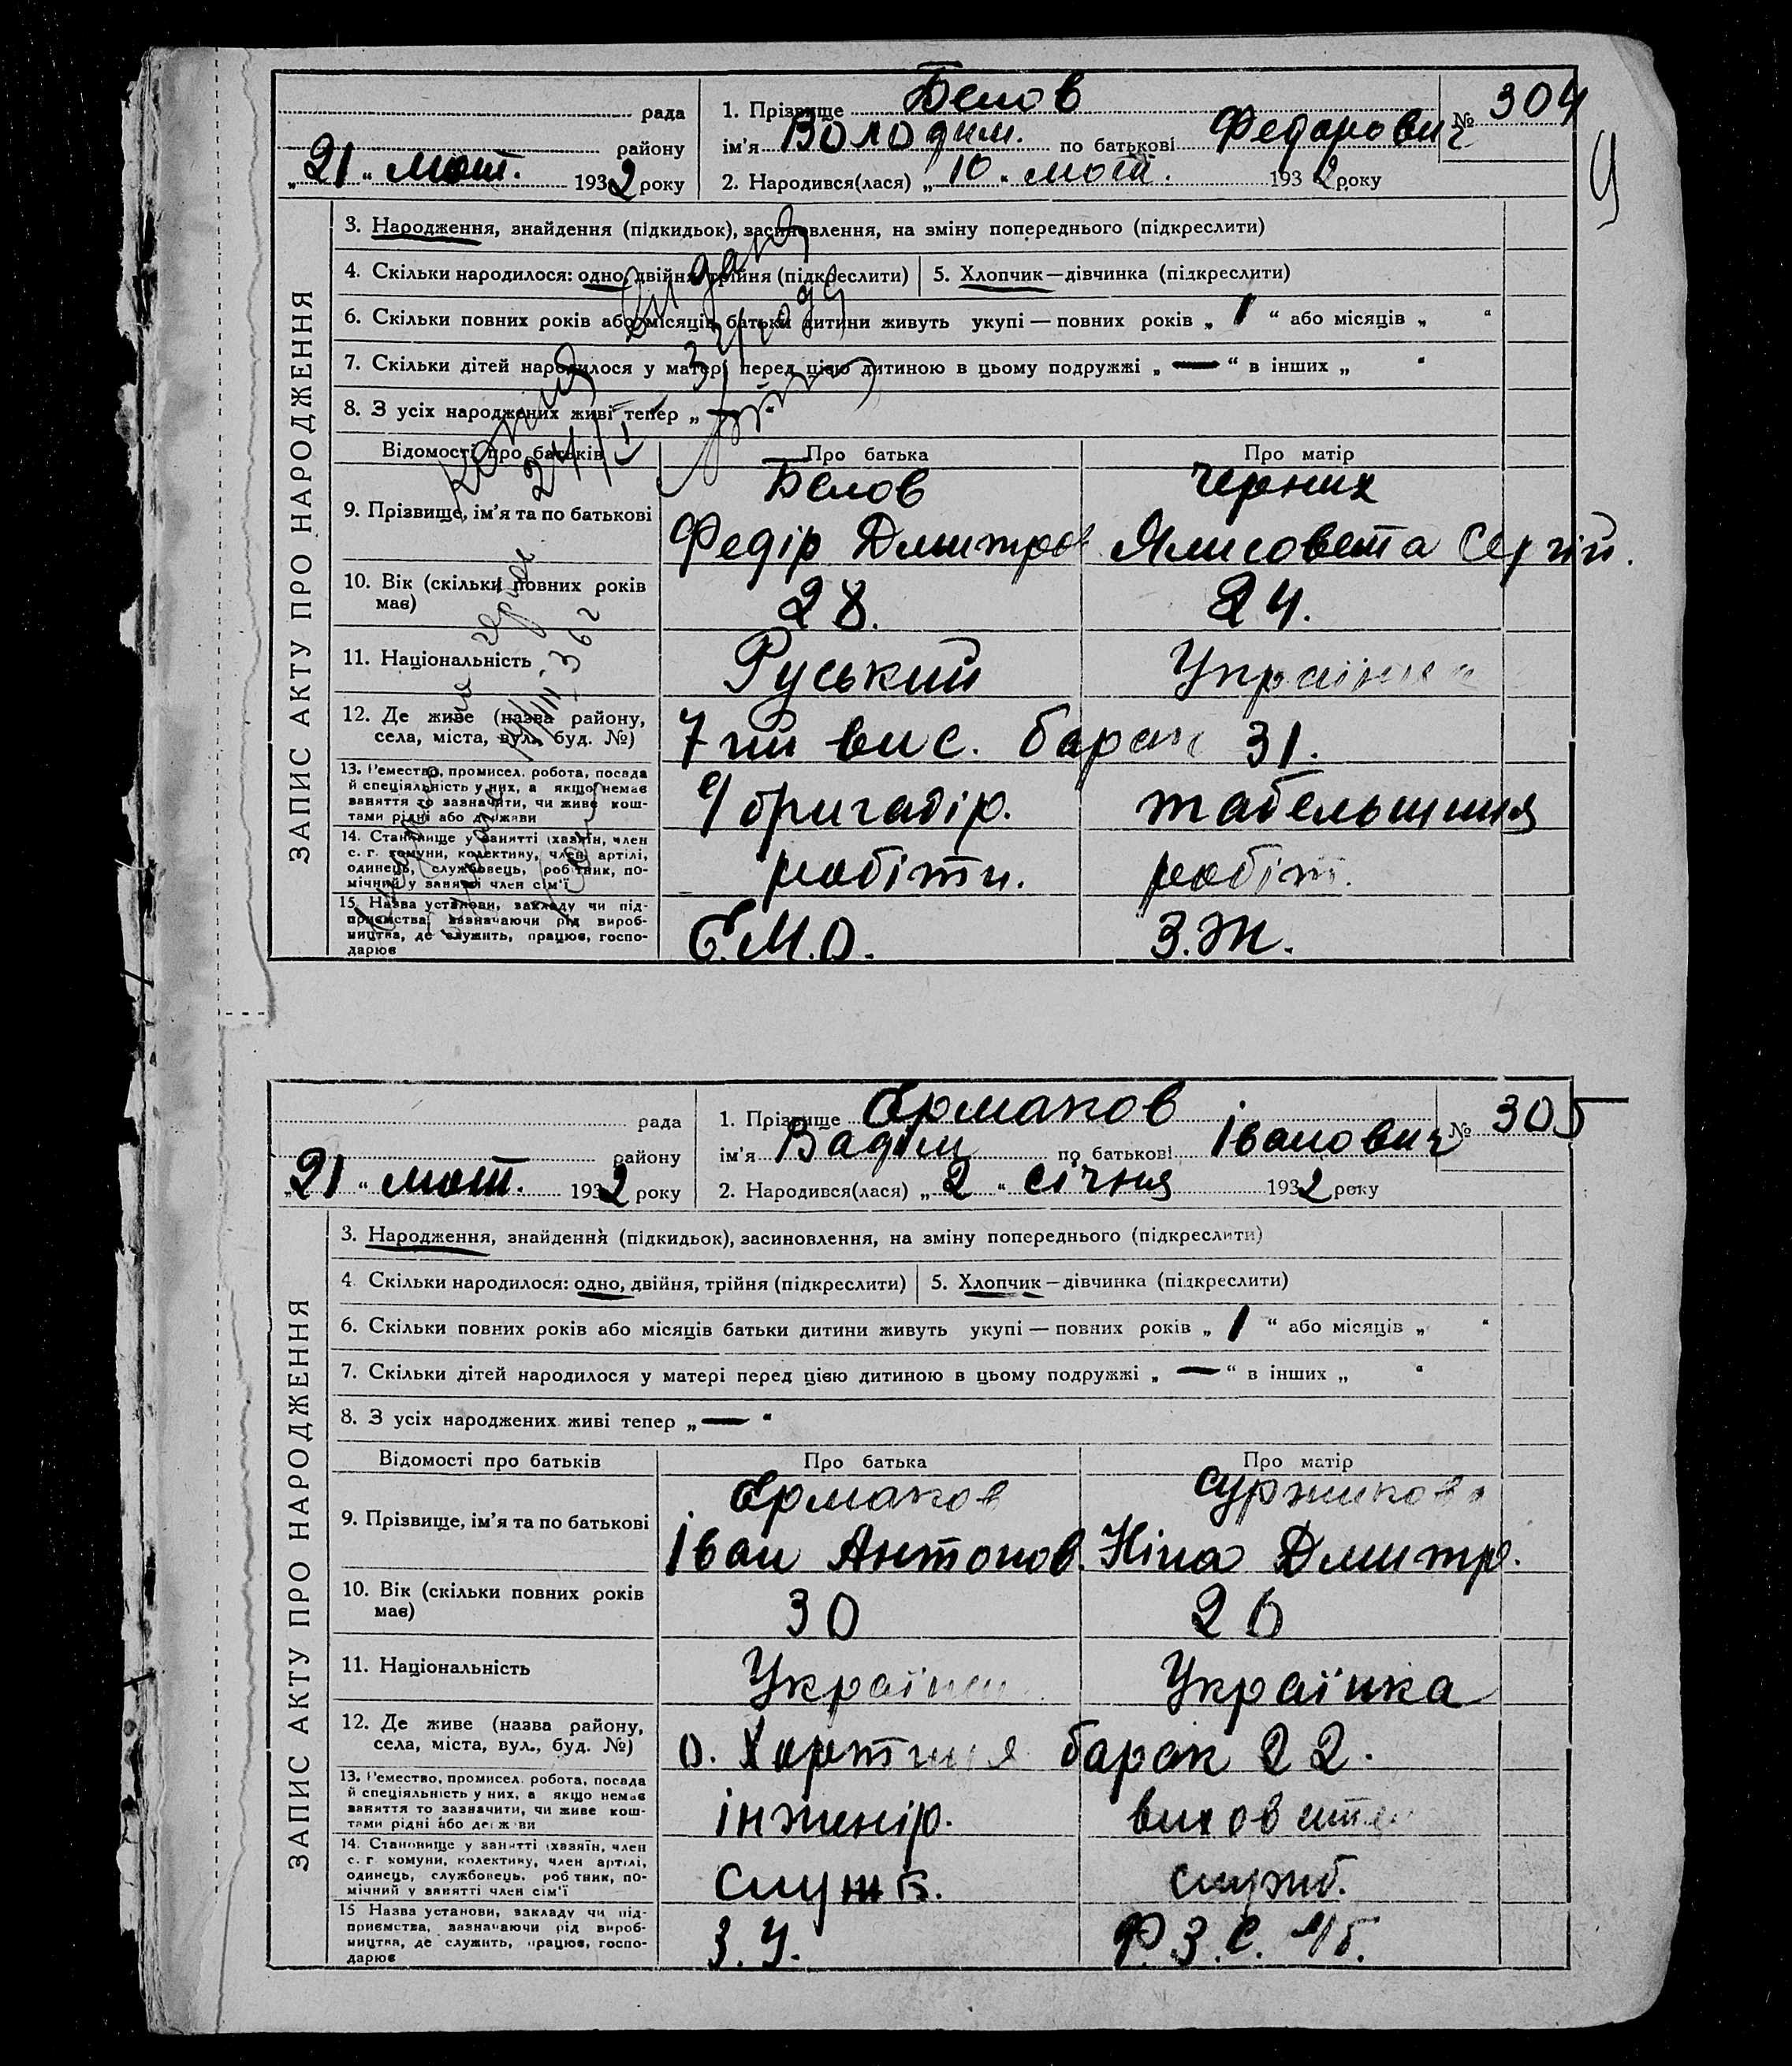 рада
району
„21“ лют. 1932 року
1. Прізвище Бєлов
ім'я Володим. по батькові Федорович
№ 304
2. Народився(лася) „10“ лют. 1932 року
9
ЗАПИС АКТУ ПРО НАРОДЖЕННЯ
3. Народження, знайдення (підкидьок), засиновлення, на зміну попереднього (підкреслити)
4. Скільки народилося: одно, двійня, трійня (підкреслити) 5. Хлопчик—дівчинка (підкреслити)
6. Скільки повних років або місяців батьки дитини живуть укупі — повних років „1“ або місяців „ “
7. Скільки дітей народилося у матері перед цією дитиною в цьому подружжі „—“ в інших „ “
8. З усіх народжених живі тепер „—“
Відомості про батьків Про батька Про матір
9. Прізвище, ім'я та по батькові
Бєлов Черних
Федір Дмитров Єлисовета Сергій.
10. Вік (скільки повних років
має)
28. 24.
11. Національність Руський Українка
12. Де живе (назва району,
села, міста, вул., буд. №)
7 ий вис. барак 31.
13. Ремество, промисел. робота, посада
й спеціяльність у них, а якщо немає
заняття то зазначити, чи живе кош-
тами рідні або держави
бригадір. табельщиця
14. Становище у занятті (хазяїн, член
с. г. комуни, колективу, член артілі,
одинець, службовець, робітник, по-
мічний у занятті член сім'ї
робітн. робіт.
15. Назва установи, закладу чи під-
приємства, зазначаючи рід вироб-
ництва, де служить, працює, госпо-
дарює
Є.М.О. З.Ж.
рада
району
„21“ лют. 1932 року
1. Прізвище Єрмаков
ім'я Вадім по батькові Іванович
№ 305
2. Народився(лася) „2“ січня 1932 року
ЗАПИС АКТУ ПРО НАРОДЖЕННЯ
3. Народження, знайдення (підкидьок), засиновлення, на зміну попереднього (підкреслити)
4. Скільки народилося: одно, двійня, трійня (підкреслити) 5. Хлопчик—дівчинка (підкреслити)
6. Скільки повних років або місяців батьки дитини живуть укупі — повних років „1“ або місяців „ “
7. Скільки дітей народилося у матері перед цією дитиною в цьому подружжі „—“ в інших „ “
8. З усіх народжених живі тепер „—“
Відомості про батьків Про батька Про матір
9. Прізвище, ім'я та по батькові
Єрмаков Суржикова
Іван Антонов. Ніна Дмитр.
10. Вік (скільки повних років
має)
30 26
11. Національність Українец Українка
12. Де живе (назва району,
села, міста, вул., буд. №)
о. Хортиця барак 22.
13. Ремество, промисел. робота, посада
й спеціяльність у них, а якщо немає
заняття то зазначити, чи живе кош-
тами рідні або держави
інженір. виховател
14. Становище у занятті (хазяїн, член
с. г. комуни, колективу, член артілі,
одинець, службовець, робітник, по-
мічний у занятті член сім'ї
служб. служб.
15 Назва установи, закладу чи під-
приємства, зазначаючи рід вироб-
ництва, де служить, працює, госпо-
дарює
З.У. Ф.З.С.